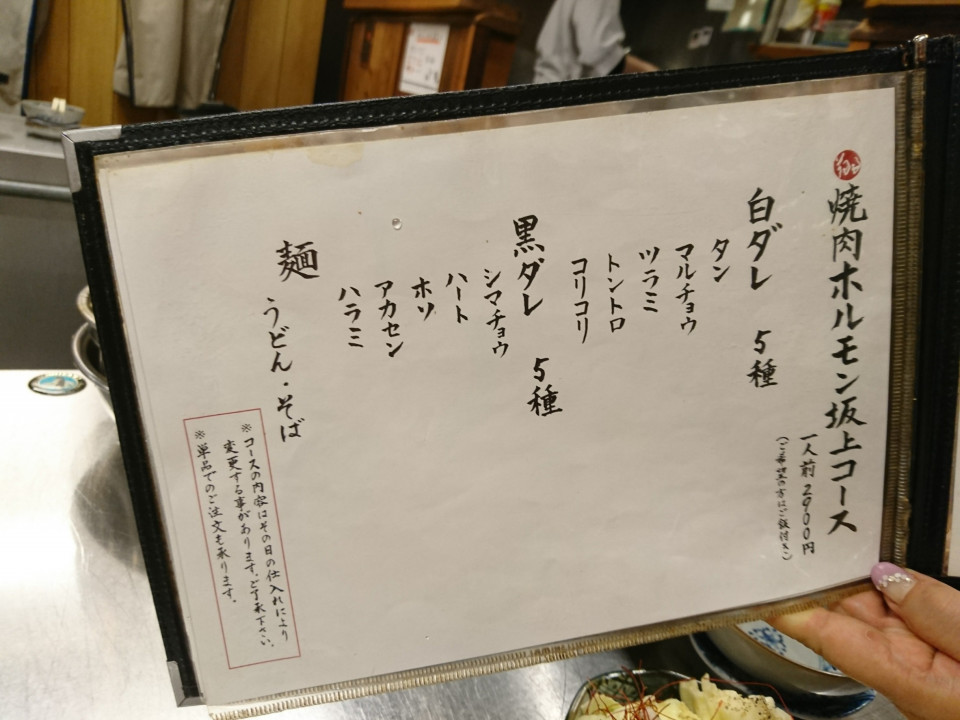 焼肉ホルモン坂上コース
一人前 2900円
(ご希望の方はご飯付き)
白ダレ 5種
タン
マルチョウ
ツラミ
トントロ
コリコリ
黒ダレ 5種
シマチョウ
ハート
ホソ
アカセン
ハラミ
麺
うどん・そば
※コースの内容はその日の仕入れにより
変更する事があります。ご了承下さい。
※単品でのご注文も承ります。